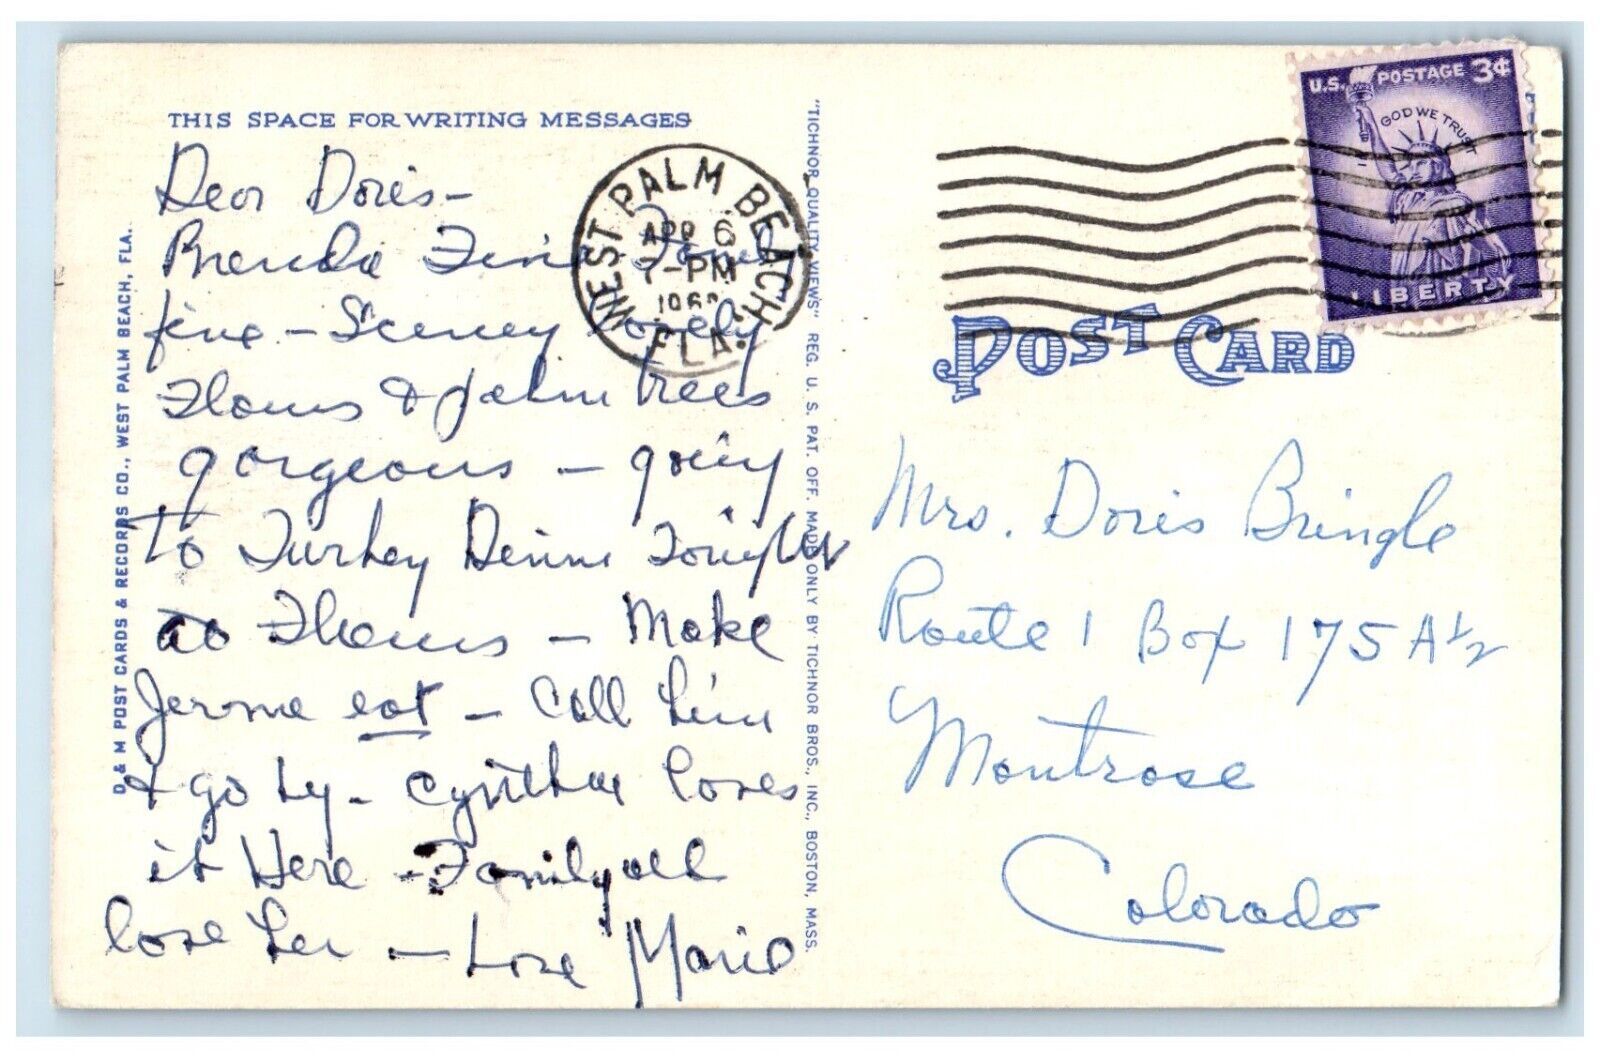 THIS SPACE FOR WRITING MESSAGES
Dear Doris -
Brenda
fine - Scenery lovely
Flowers & palm trees
gorgeous - going
to Turkey Dinner Tonight
- Make
Jerome eat - Call
& go by - Cynthia loves
it Here - Family all
love her - Love Marie
D & M POST CARDS & RECORDS CO., WEST PALM BEACH, FLA.
"TICHNOR QUALITY VIEWS" REG. U. S. PAT. OFF. MADE ONLY BY TICHNOR BROS., INC., BOSTON, MASS.
WEST PALM BEACH
APR 6
7-PM
FLA.
U.S. POSTAGE 3¢
IN GOD WE TRUST
LIBERTY
POST CARD
Mrs. Doris Bringle
Route 1 Box 175 A½
Montrose
Colorado